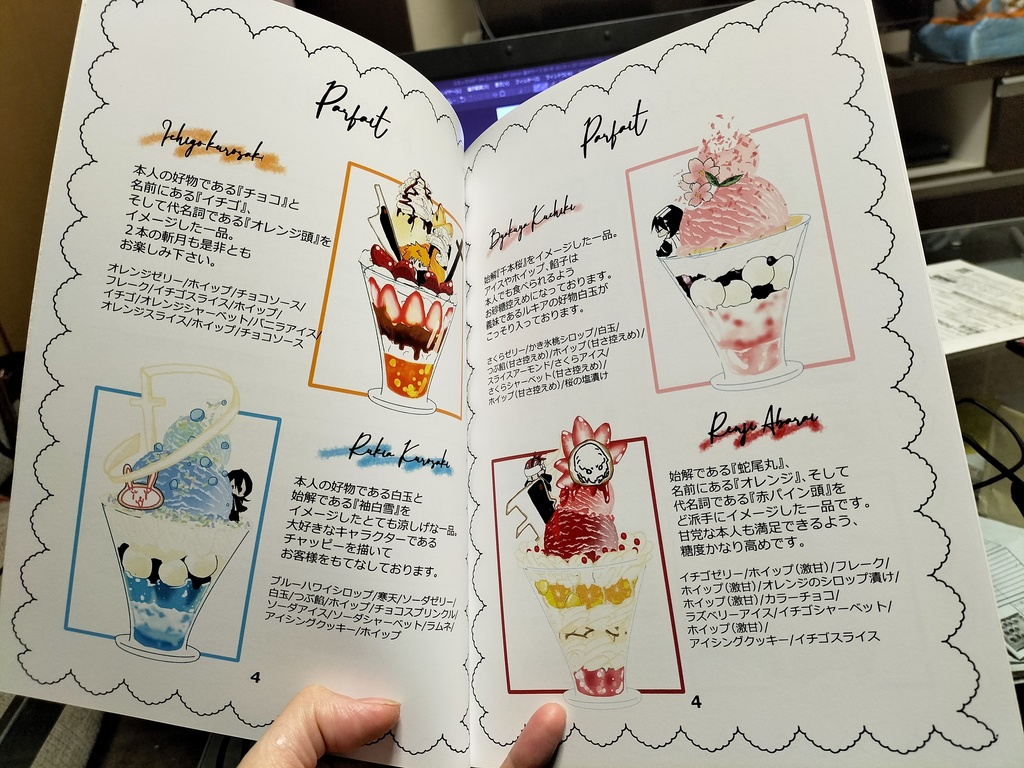 Parfait
Ichigo Kurosaki
本人の好物である『チョコ』と
名前にある『イチゴ』、
そして代名詞である『オレンジ頭』を
イメージした一品。
2本の斬月も是非とも
お楽しみ下さい。
オレンジゼリー/ホイップ/チョコソース/
フレーク/イチゴスライス/ホイップ/
イチゴ/オレンジシャーベット/バニラアイス/
オレンジスライス/ホイップ/チョコソース
Rukia Kurosaki
本人の好物である白玉と
始解である『袖白雪』を
イメージしたとても涼しげな一品。
大好きなキャラクターである
チャッピーを描いて
お客様をもてなしております。
ブルーハワイシロップ/寒天/ソーダゼリー/
白玉/つぶ餡/ホイップ/チョコスプリンクル/
ソーダアイス/ソーダシャーベット/ラムネ/
アイシングクッキー/ホイップ
4
Parfait
Byakuya Kuchiki
始解『千本桜』をイメージした一品。
アイスやホイップ、餡子は
本人でも食べられるよう
お砂糖控えめになっております。
義妹であるルキアの好物白玉が
こっそり入っております。
さくらゼリー/かき氷桃シロップ/白玉/
つぶ餡(甘さ控えめ)/ホイップ(甘さ控えめ)/
スライスアーモンド/さくらアイス/
さくらシャーベット(甘さ控えめ)/
ホイップ(甘さ控えめ)/桜の塩漬け
Renji Abarai
始解である『蛇尾丸』、
名前にある『オレンジ』、そして
代名詞である『赤パイン頭』を
ど派手にイメージした一品です。
甘党な本人も満足できるよう、
糖度かなり高めです。
イチゴゼリー/ホイップ(激甘)/フレーク/
ホイップ(激甘)/オレンジのシロップ漬け/
ホイップ(激甘)/カラーチョコ/
ラズベリーアイス/イチゴシャーベット/
ホイップ(激甘)/
アイシングクッキー/イチゴスライス
4